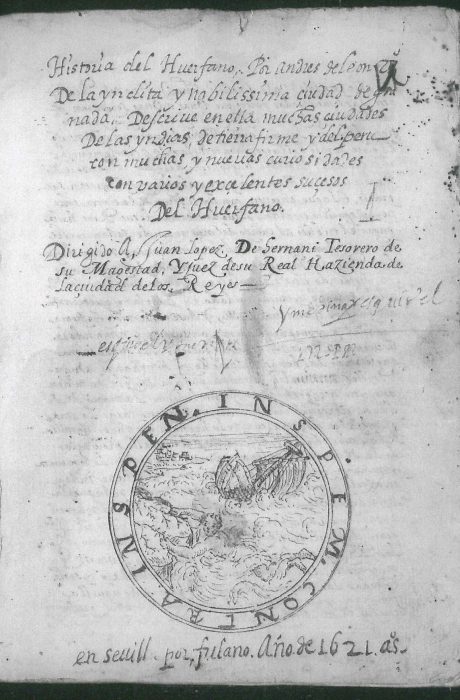 Historia del Huerfano, Por Andres de Leon
De la ynclita y nobilissima ciudad de gra
nada, Descrive en ella muchas ciudades
De las yndias, de tierra firme y del peru
con muchas y nuevas curiosidades
con varios y excelentes sucesos
Del Huerfano.
Dirigido A, Juan Lopez, De hernani Tesorero de
su Magestad, Y Juez de su Real Hazienda de
la ciudad de los Reyes
SPEN. IN SPEM. CONTRA IN
en sevill. por, fulano. Año de 1621. as.